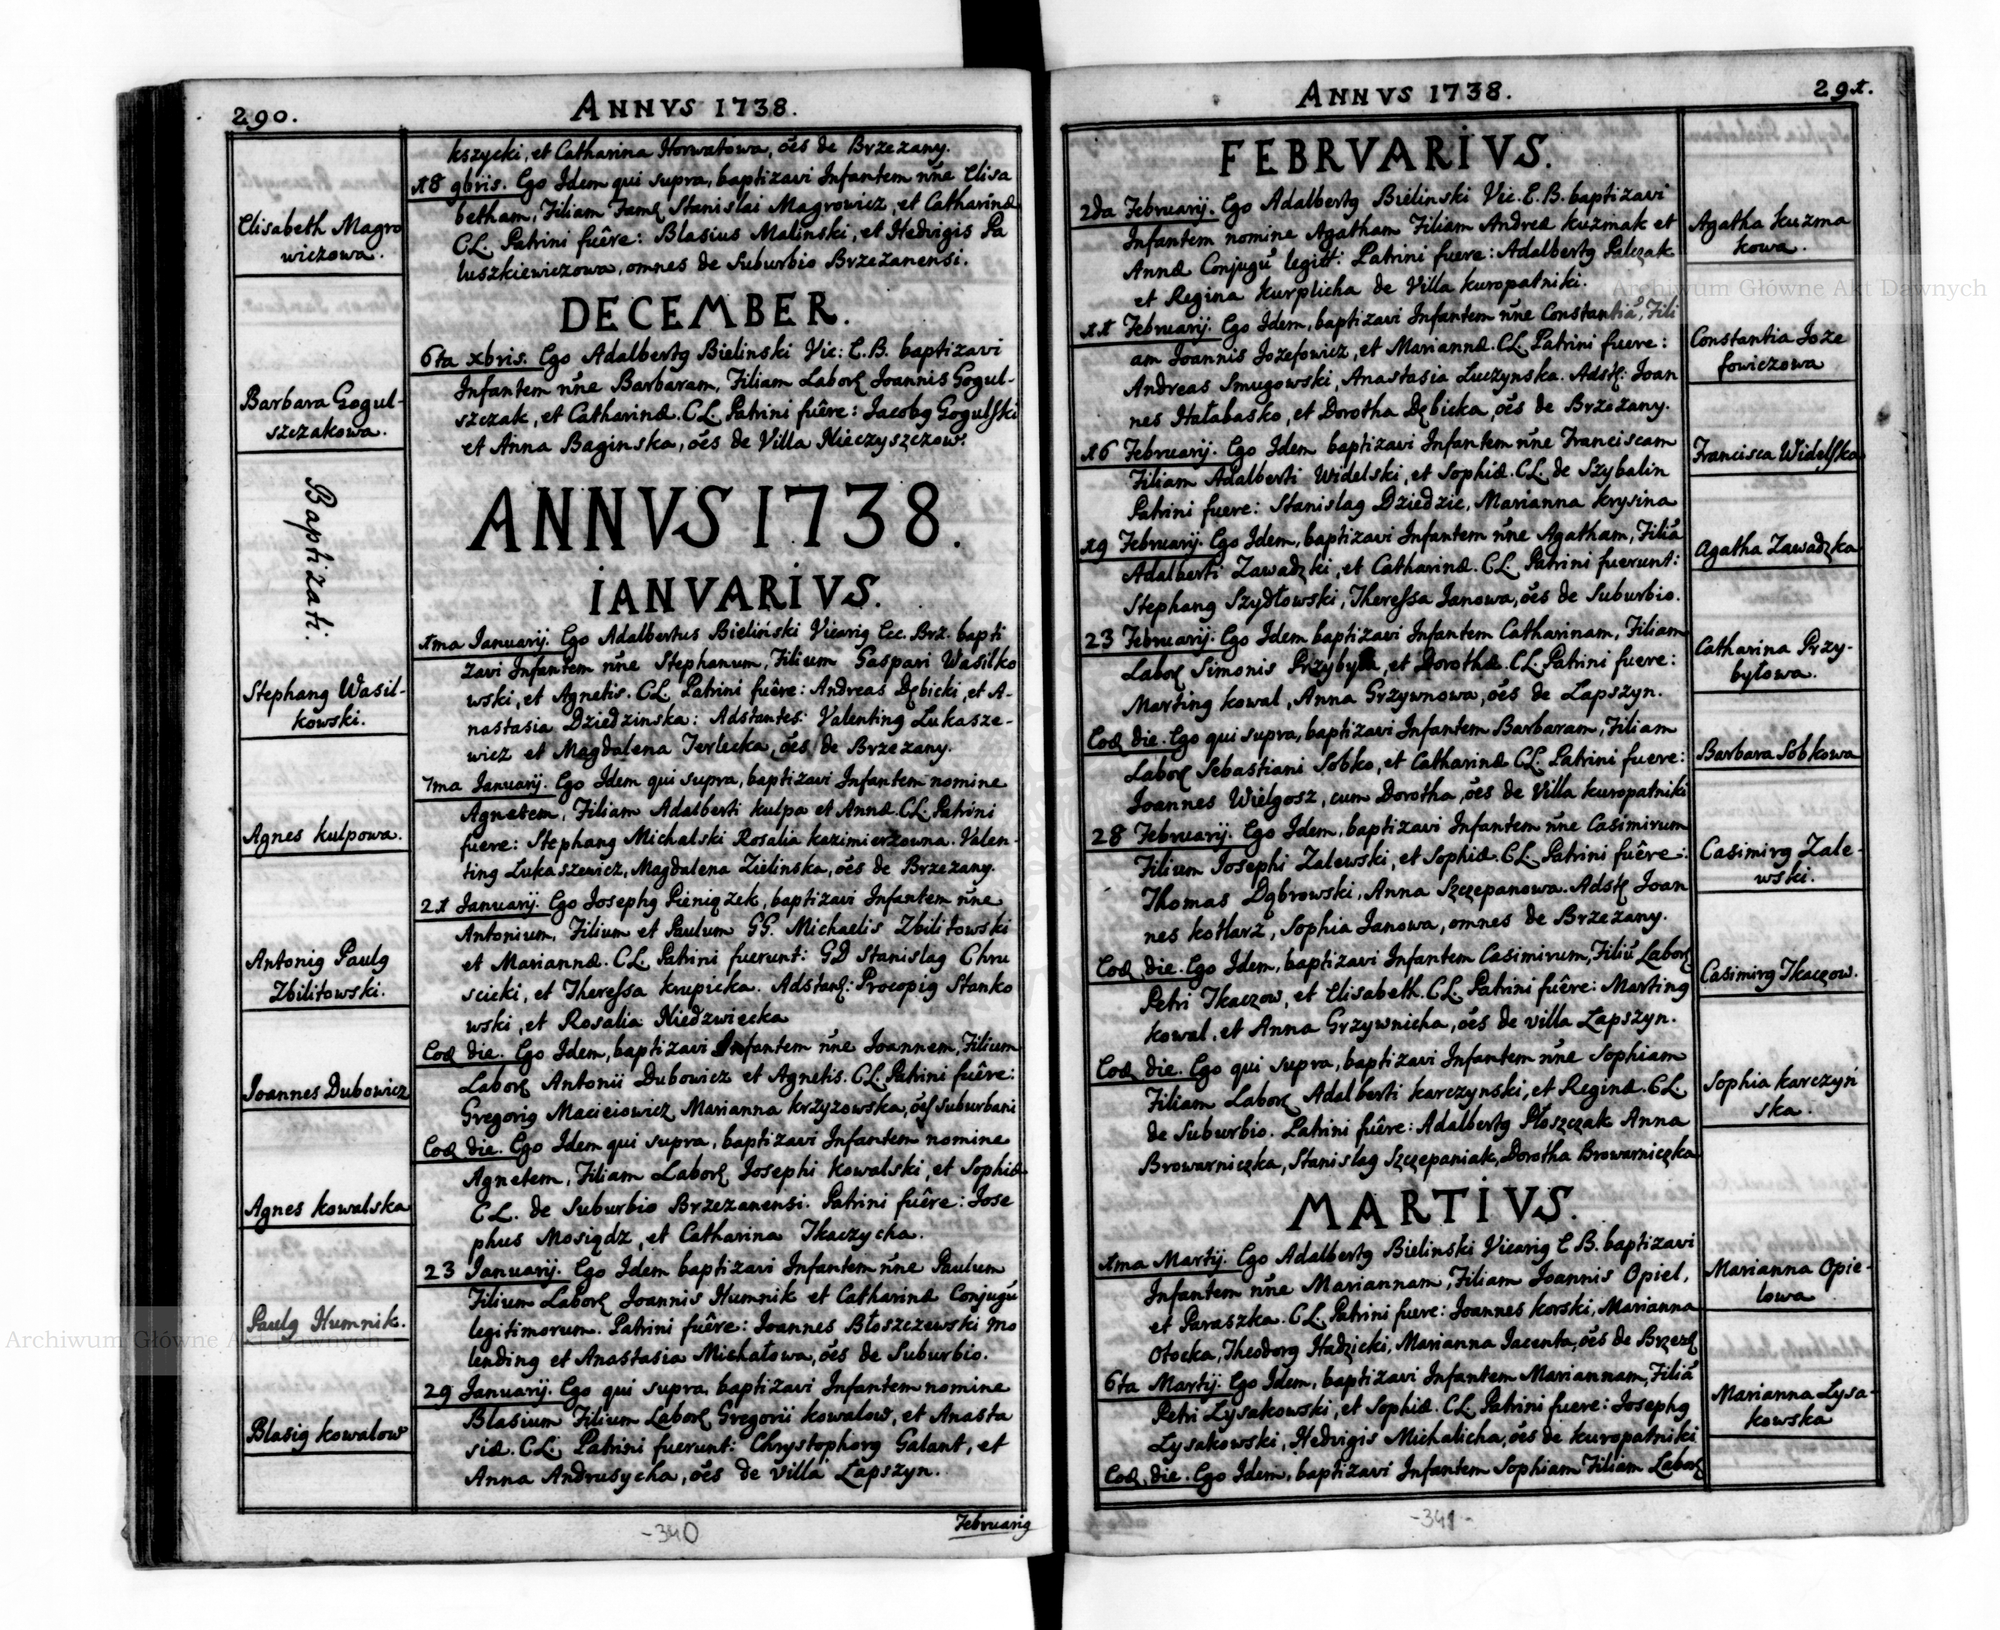 290.
ANNVS 1738.
kszycki, et Catharina Horwatowa, oes de Brzezany.
18 9bris. Ego Idem qui supra, baptizavi Infantem nne Elisa
betham, Filiam Fam. Stanislai Magrowicz, et Catharinæ
CL. Patrini fuêre: Blasius Malinski, et Hedvigis Pa
luszkiewiczowa, omnes de Suburbio Brzezanensi.
Elisabeth Magro
wiczowa.
DECEMBER.
6ta xbris. Ego Adalbertq Bielinski Vic: E.B. baptizavi
Infantem nne Barbaram, Filiam Labor. Joannis Gogul-
szczak, et Catharinæ. CL. Patrini fuêre: Jacobq Gogulski
et Anna Baginska, oes de Villa Nieczyszczow.
Barbara Gogul-
szczakowa.
Baptizati.
ANNVS 1738.
IANVARIVS.
1ma Januarij. Ego Adalbertus Bieliński Vicariq Ecc. Brz. bapti
zavi Infantem nne Stephanum, Filium Gaspari Wasilko
wski, et Agnetis. CL. Patrini fuêre: Andreas Dębicki, et A-
nastasia Dziedzinska: Adstantes: Valentinq Lukasze-
wicz et Magdalena Terlecka, oes de Brzezany.
Stephanq Wasil-
kowski.
7ma Januarij. Ego Idem qui supra, baptizavi Infantem nomine
Agnetem, Filiam Adalberti Kulpa et Annæ. CL. Patrini
fuere: Stephanq Michalski Rosalia Kazimierzowna. Valen-
tinq Lukaszewicz, Magdalena Zielinska, oes de Brzezany.
Agnes Kulpowa.
21 Januarij. Ego Josephq Pieniążek, baptizavi Infantem nne
Antonium, Filium et Paulum GG. Michaelis Zbilitowski
et Mariannæ. CL. Patrini fuerunt: GD Stanislaq Chru
scicki, et Theressa Krupicka. Adstant: Procopiq Stanko
wski, et Rosalia Niedzwiecka
Antoniq Paulq
Zbilitowski.
Eod. die. Ego Idem, baptizavi Infantem nne Joannem, Filium
Labor. Antonii Dubowicz et Agnetis. CL. Patrini fuêre:
Gregoriq Macieiowicz Marianna Krzyżowska, oes suburbani
Joannes Dubowicz
Eod. die. Ego Idem qui supra, baptizavi Infantem nomine
Agnetem, Filiam Labor. Josephi Kowalski, et Sophiæ
CL. de Suburbio Brzezanensi. Patrini fuêre: Jose
phus Mosiądz, et Catharina Tkaczycha.
Agnes Kowalska
23 Januarij. Ego Idem baptizavi Infantem nne Paulum
Filium Labor. Joannis Humnik et Catharinæ Conjugu
legitimorum. Patrini fuêre: Joannes Błoszczewski mo
lendinq et Anastasia Michałowa, oes de Suburbio.
Paulq Humnik.
29 Januarij. Ego qui supra, baptizavi Infantem nomine
Blasium Filium Labor. Gregorii Kowalow, et Anasta
siæ. CL. Patrini fuerunt: Chrystophorq Galant, et
Anna Andrusycha, oes de villa Łapszyn.
Blasiq Kowalow
Februariq
-340
ANNVS 1738.
291.
FEBRVARIVS.
2da Februarij. Ego Adalbertq Bielinski Vic. E.B. baptizavi
Infantem nomine Agatham Filiam Andreæ Kuzmak et
Annæ Conjugu legitt: Patrini fuere: Adalbertq Palczak
et Regina Kurplicha de Villa Kuropatniki.
Agatha Kuzma
kowa.
11 Februarij. Ego Idem, baptizavi Infantem nne Constantia, Fili
am Joannis Jozefowicz, et Mariannæ. CL. Patrini fuere:
Andreas Smugowski, Anastasia Luczynska. Adst: Joan
nes Hałabasko, et Dorotha Dębicka, oes de Brzezany.
Constantia Joze
fowiczowa
16 Februarij. Ego Idem baptizavi Infantem nne Franciscam
Filiam Adalberti Widelski, et Sophiæ. CL. de Szybalin
Patrini fuere: Stanislaq Dziedzic, Marianna Krysina
Francisca Widelska
19 Februarij. Ego Idem, baptizavi Infantem nne Agatham, Filia
Adalberti Zawadzki, et Catharinæ. CL. Patrini fuerunt:
Stephanq Szydłowski, Theressa Janowa, oes de Suburbio.
Agatha Zawadzka
23 Februarij. Ego Idem baptizavi Infantem Catharinam, Filiam
Labor. Simonis Przybyła, et Dorothæ. CL. Patrini fuere:
Martinq Kowal, Anna Grzywnowa, oes de Łapszyn.
Catharina Przy-
byłowa.
Eod. die. Ego qui supra, baptizavi Infantem Barbaram, Filiam
Labor. Sebastiani Sobko, et Catharinæ CL. Patrini fuere:
Joannes Wielgosz, cum Dorotha, oes de Villa Kuropatniki
Barbara Sobkowa
28 Februarij. Ego Idem, baptizavi Infantem nne Casimirum
Filium Josephi Zalewski, et Sophiæ. CL. Patrini fuêre:
Thomas Dąbrowski, Anna Szczepanowa. Adst. Joan
nes Kotlarz, Sophia Janowa, omnes de Brzezany.
Casimirq Zale-
wski.
Eod. die. Ego Idem, baptizavi Infantem Casimirum, Filiu Labor.
Petri Tkaczow, et Elisabeth. CL. Patrini fuêre: Martinq
Kowal, et Anna Grzywnicha, oes de villa Łapszyn.
Casimirq Tkaczow.
Eod. die. Ego qui supra, baptizavi Infantem nne Sophiam
Filiam Labor. Adalberti Karczynski, et Reginæ. CL
de Suburbio. Patrini fuêre: Adalbertq Płoszczak Anna
Browarniczka, Stanislaq Szczepaniak, Dorotha Browarniczka
Sophia Karczyń
ska.
MARTIVS.
1ma Martij. Ego Adalbertq Bielinski Vicariq E B. baptizavi
Infantem nne Mariannam, Filiam Joannis Opiel,
et Paraszka. CL. Patrini fuere: Joannes Korski, Marianna
Otocka, Theodorq Hadzicki, Marianna Jacenta, oes de Brzez.
Marianna Opie-
lowa
6ta Martij. Ego Idem, baptizavi Infantem Mariannam, Filia
Petri Lysakowski, et Sophiæ. CL. Patrini fuere: Josephq
Lysakowski, Hedvigis Michalicha, oes de Kuropatniki
Marianna Lysa-
kowska
Eod. die. Ego Idem, baptizavi Infantem Sophiam Filiam Labor.
-341-
Archiwum Główne Akt Dawnych
Archiwum Główne Akt Dawnych